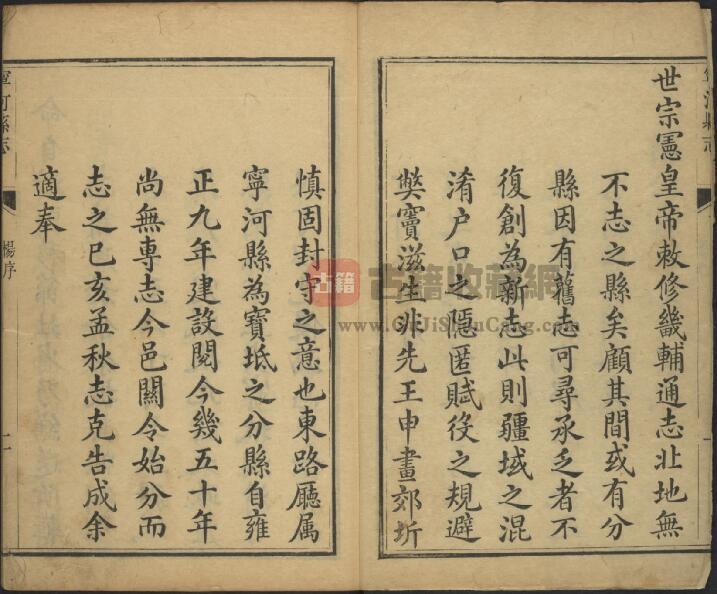 世宗憲皇帝敕修畿輔通志北地無
不志之縣矣顧其間或有分
縣因有舊志可尋承乏者不
復創為新志此則疆域之混
淆户口之隱匿賦役之規避
獘竇滋生非先王申畫郊圻
慎固封守之意也東路廳属
寧河縣為寶坻之分縣自雍
正九年建設閱今幾五十年
尚無專志今邑關令始分而
志之已亥孟秋志克告成余
適奉
寧河縣志
楊序
二
古籍
古籍收藏網
www.GuJiShouCang.com